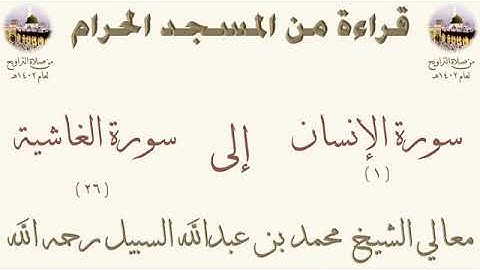 قراءة من المسجد الحرام
من صلاة التراويح
لعام ١٤٠٢هـ
من صلاة التراويح
لعام ١٤٠٢هـ
سورة الإنسان إلى سورة الغاشية
(١) (٢٦)
معالي الشيخ محمد بن عبدالله السبيل رحمه الله